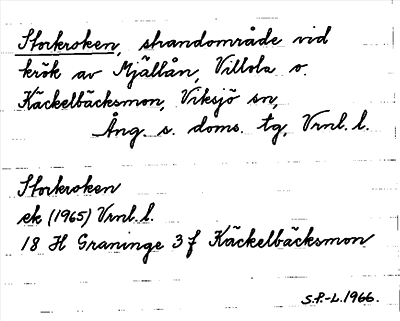 Storkroken, strandområde vid
krök av Mjällån, Villola o.
Käckelbäcksmon, Viksjö sn,
Ång. s. doms. tg, Vrnl. l.
Storkroken
ek (1965) Vrnl. l.
18 H Graninge 3 f Käckelbäcksmon
S.P.-L. 1966.